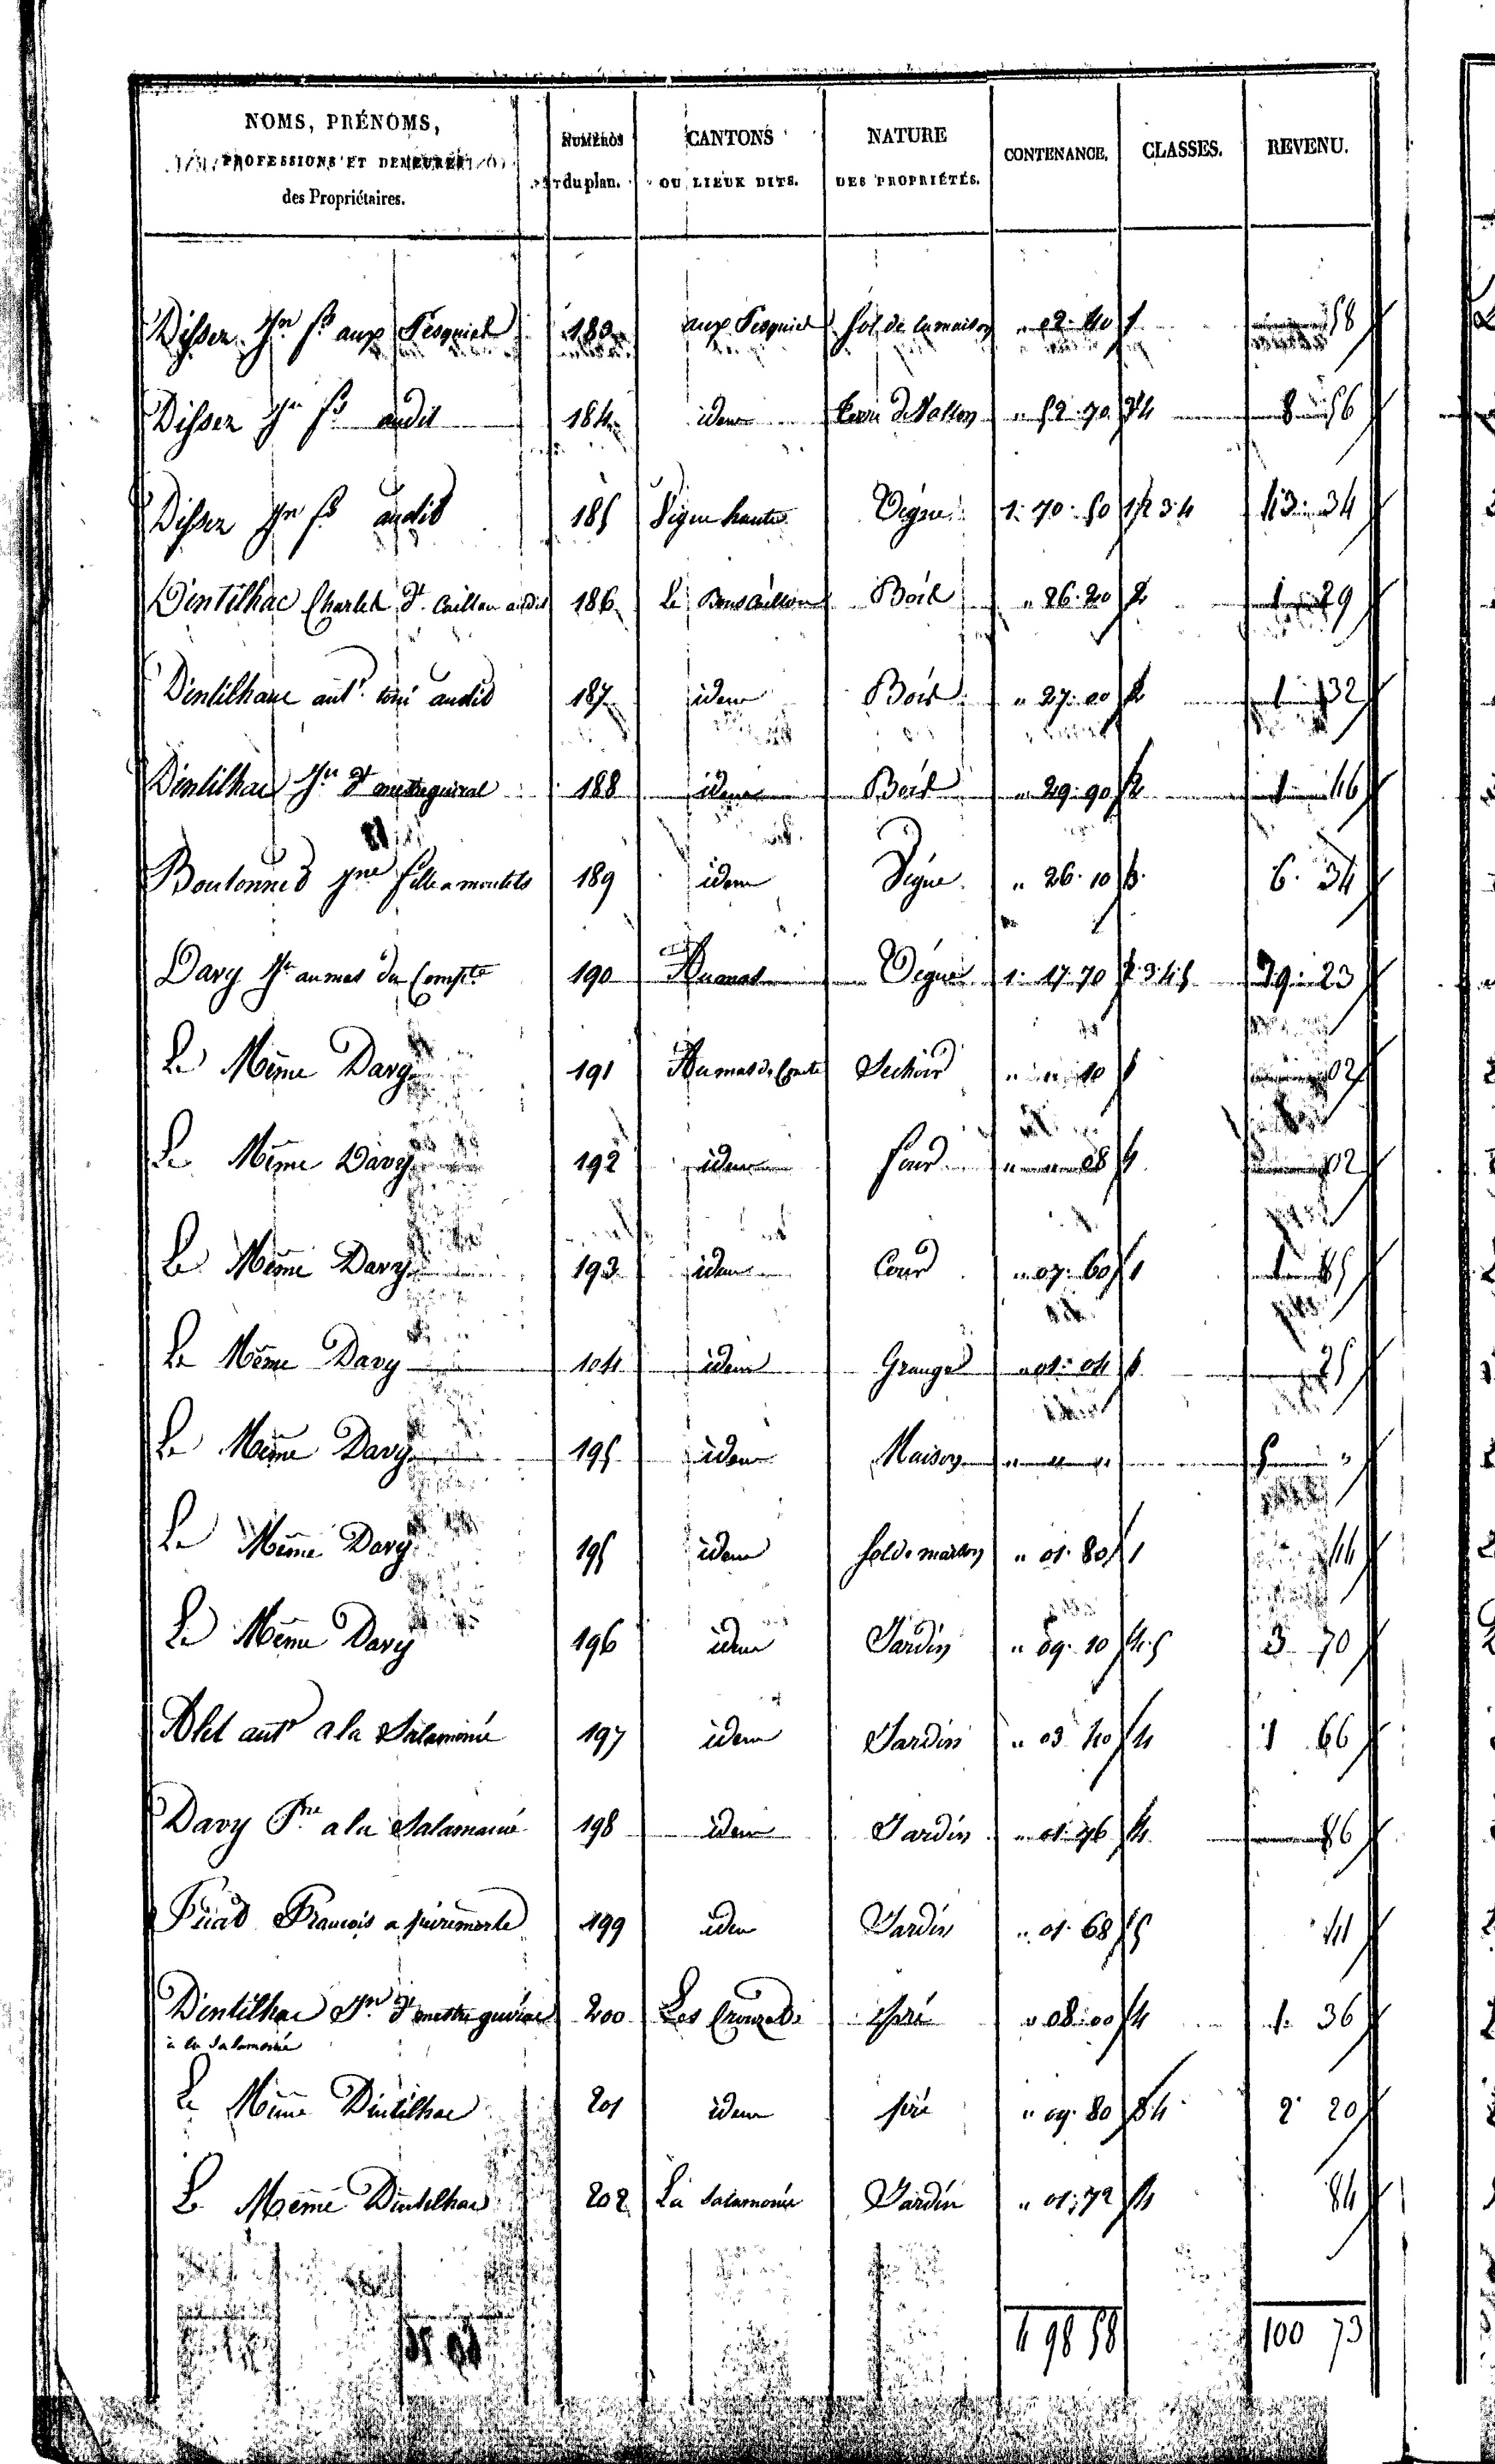 NOMS, PRÉNOMS, PROFESSIONS ET DEMEURES des Propriétaires. NUMÉROS du plan. CANTONS OU LIEUX DITS. NATURE DES PROPRIÉTÉS. CONTENANCE. CLASSES. REVENU.
Disser Jn fs aux Pesquiel 183 aux Pesquiel Sol de la maison " 02. 40 1 58
Disser Jn fs audit 184 idem " 52. 70 3 4 8 56
Disser Jn fs audit 185 Vigne haute Vigne 1. 70. 50 1 2 3 4 43. 34
Dintilhac Charles dt Caillau audit 186 Le Bois 26. 20 2 1 29
Dintilhac ant. audit 187 idem Bois " 27. 00 2 1 32
Dintilhac Jn dt mestreguiral 188 idem Bois " 29. 90 2 1 46
Boutonned Jne fille a montels 189 idem Vigne " 26. 10 3. 6. 34
Davy Jn au mas du Compte 190 Au mas Vigne 1. 17. 70 2. 3. 4. 5 29. 23
Le Même Davy 191 Au mas de Comte Sechoir " " 10 1 02
Le Même Davy 192 idem four " " 08 1 02
Le Même Davy 193 idem Cour " 07. 60 1 1 85
Le Même Davy 194 idem Grange " 01. 04 1 25
Le Même Davy 195 idem Maison " " " 5 "
Le Même Davy 195 idem sol de maison " 01. 80 1 44
Le Même Davy 196 idem Jardin " 09. 10 4. 5 3 70
Alet ant. a la Salamonié 197 idem Jardin " 03 40 4 1 66
Davy Pre a la Salamonié 198 idem Jardin " 01. 76 4 86
François a peiremorte 199 idem Jardin " 01. 68 5 41
Dintilhac Jn dt mestre guiral 200 Les Crouzets pré " 08. 00 4 1. 36
à la Salamonié
Le Même Dintilhac 201 idem pré " 09. 80 3 4 2 20
Le Même Dintilhac 202 La Salamonié Jardin " 01. 72 4 84
4 98 58 100 73